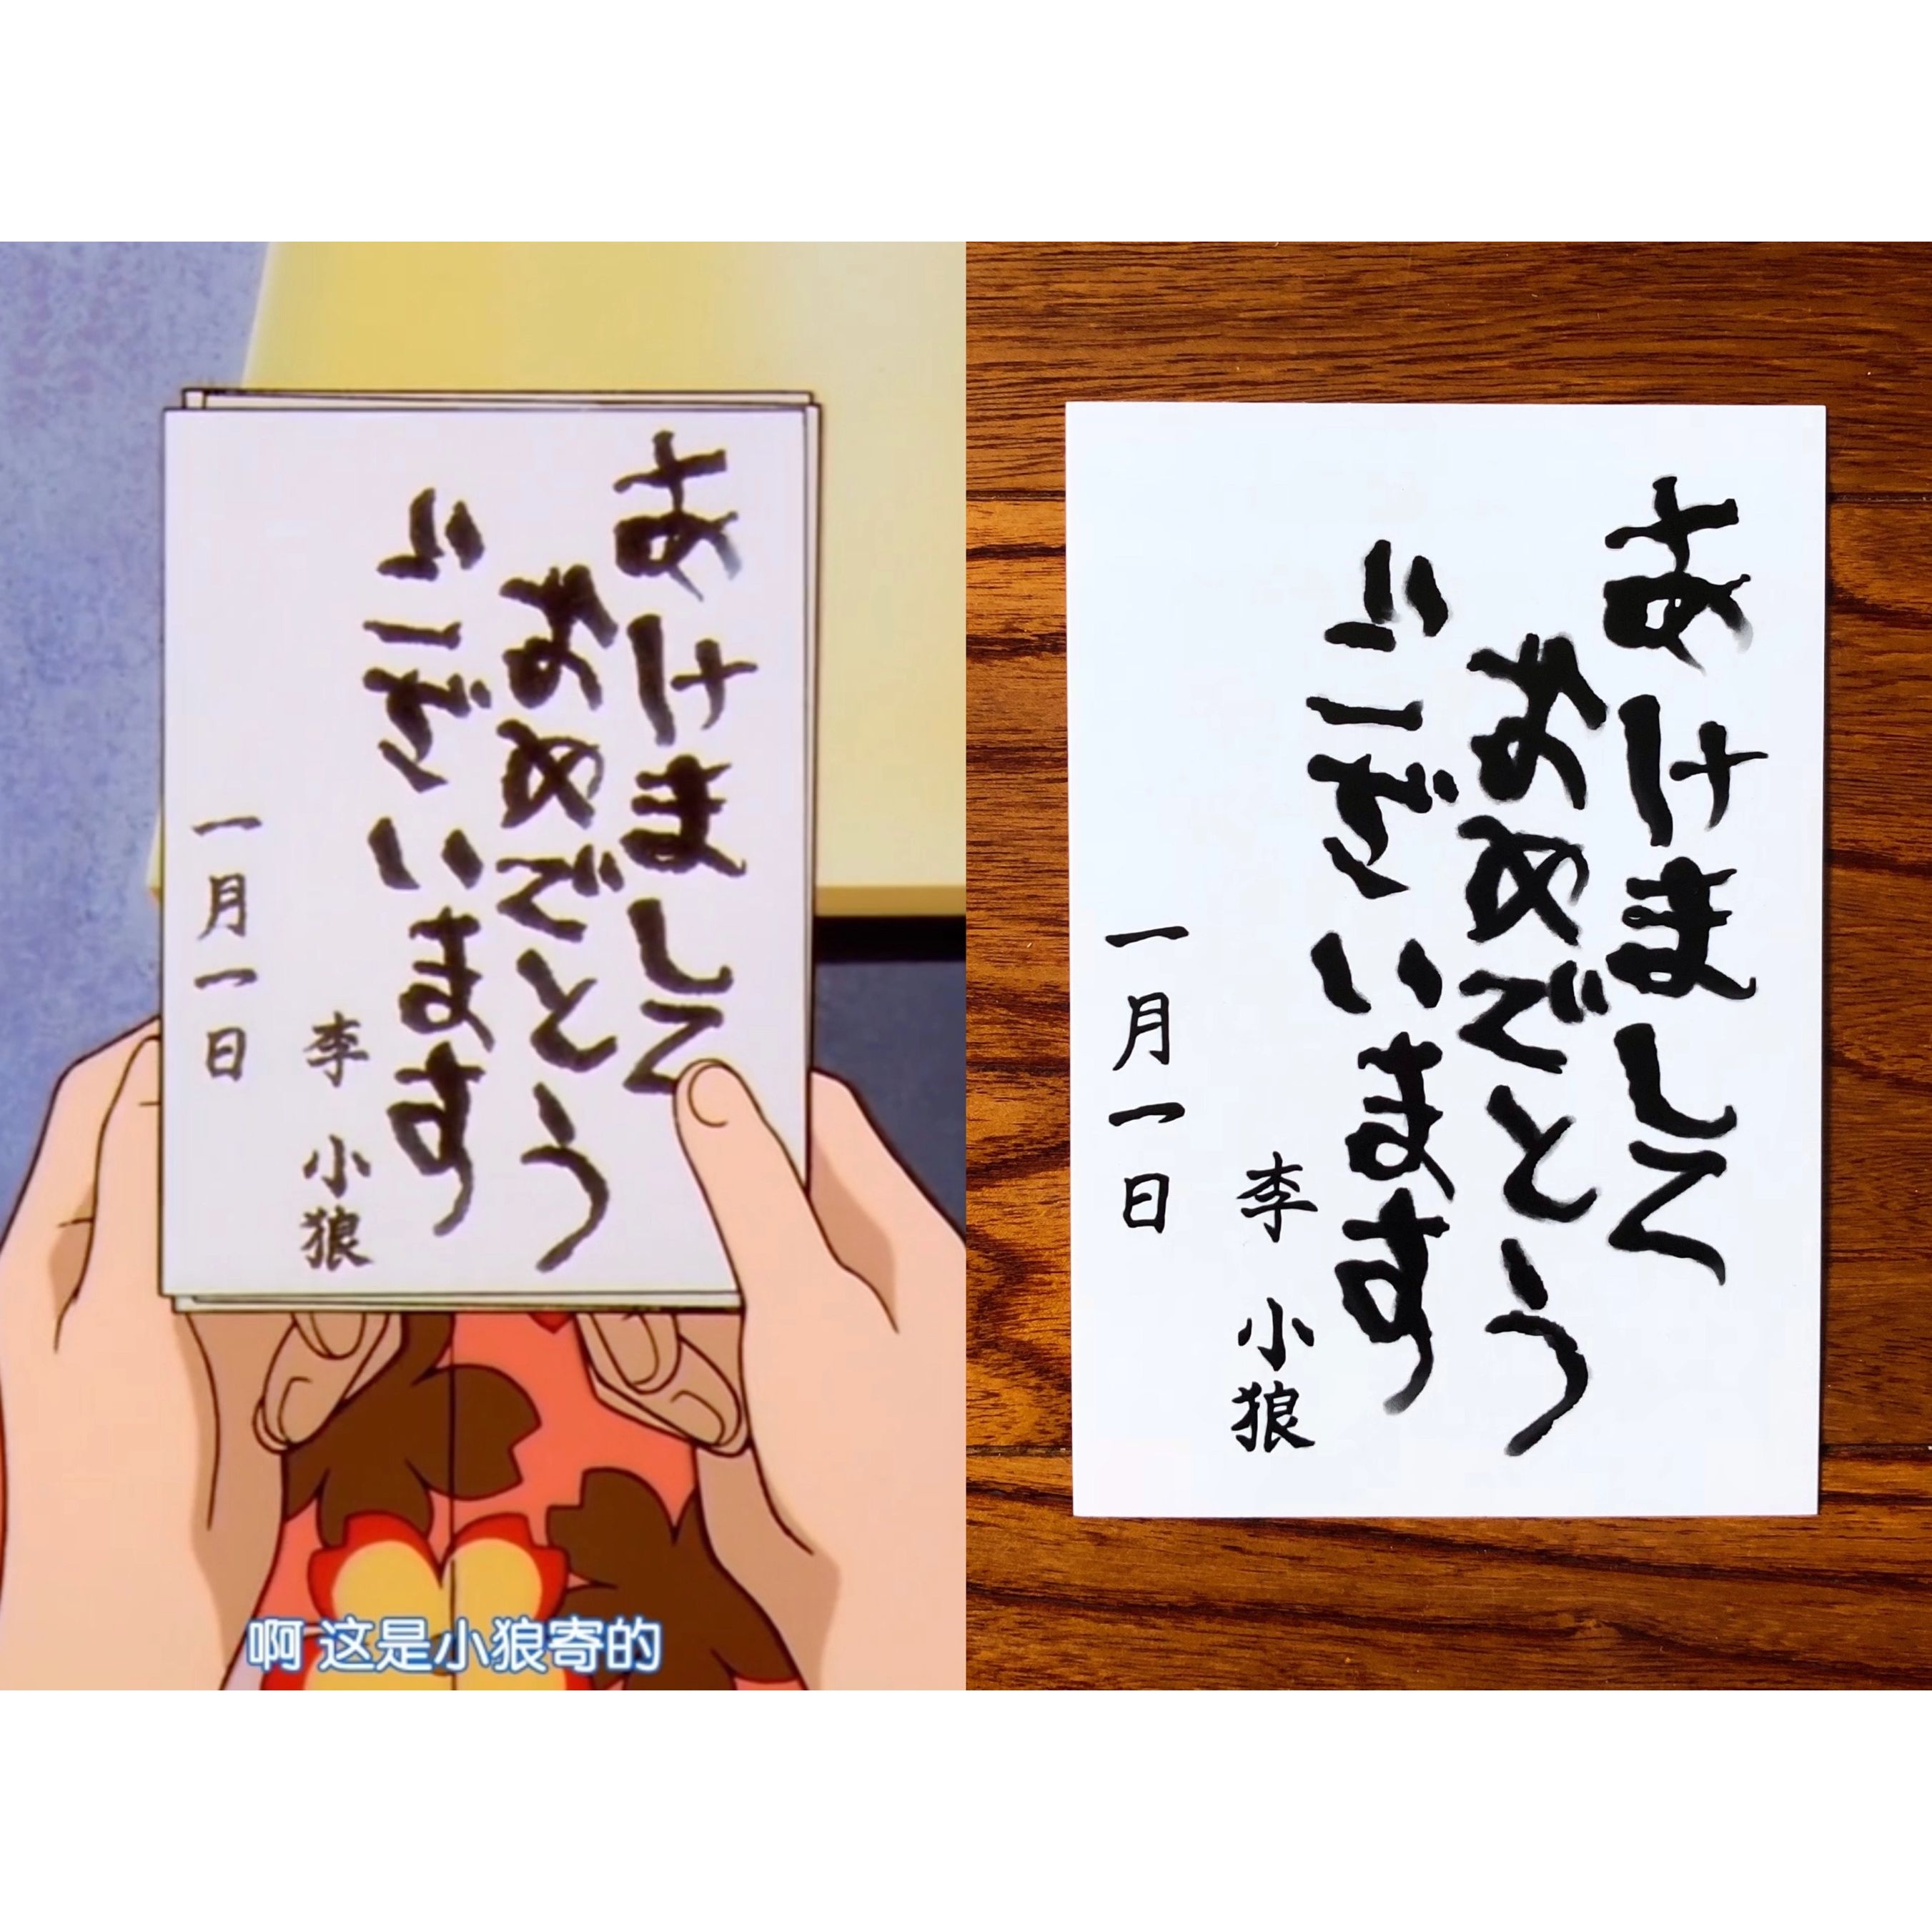 あけまして
おめでとう
ございます
李 小狼
一月一日
啊 这是小狼寄的
あけまして
おめでとう
ございます
李 小狼
一月一日